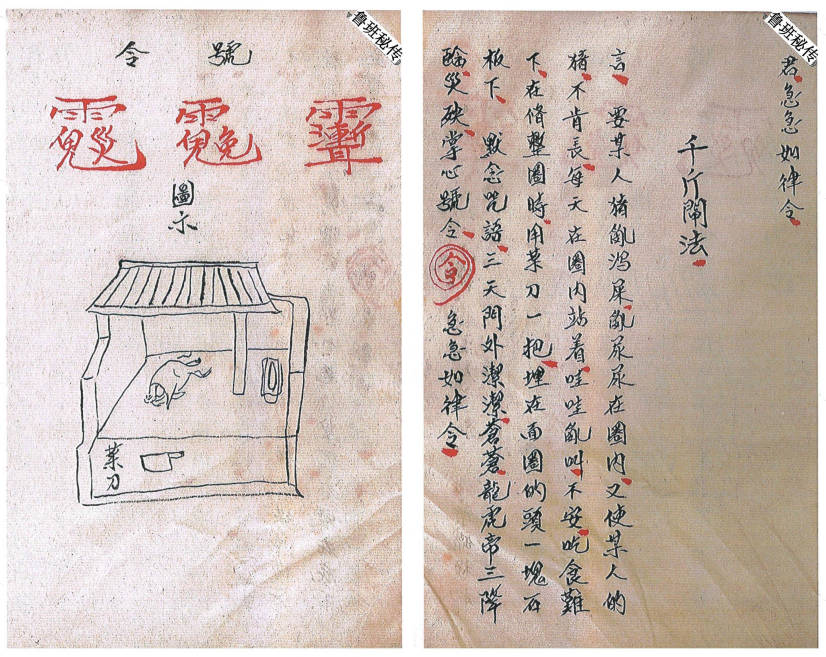 鲁班秘传
君、急急如律令、
千斤閘法、
言、要某人猪亂瀉屎、亂尿尿在圈内、又使某人的
猪、不肯長、每天在圈内站着、哇哇亂叫不安、吃食難
下、在修整圈時、用菜刀一把、埋在面圈的頭一塊石
板下、默念咒語、三天門外潔潔、蒼蒼龍虎帝三降
臨災殃、掌心號令、令 急急如律令、
鲁班秘传
號令
圖示
菜刀